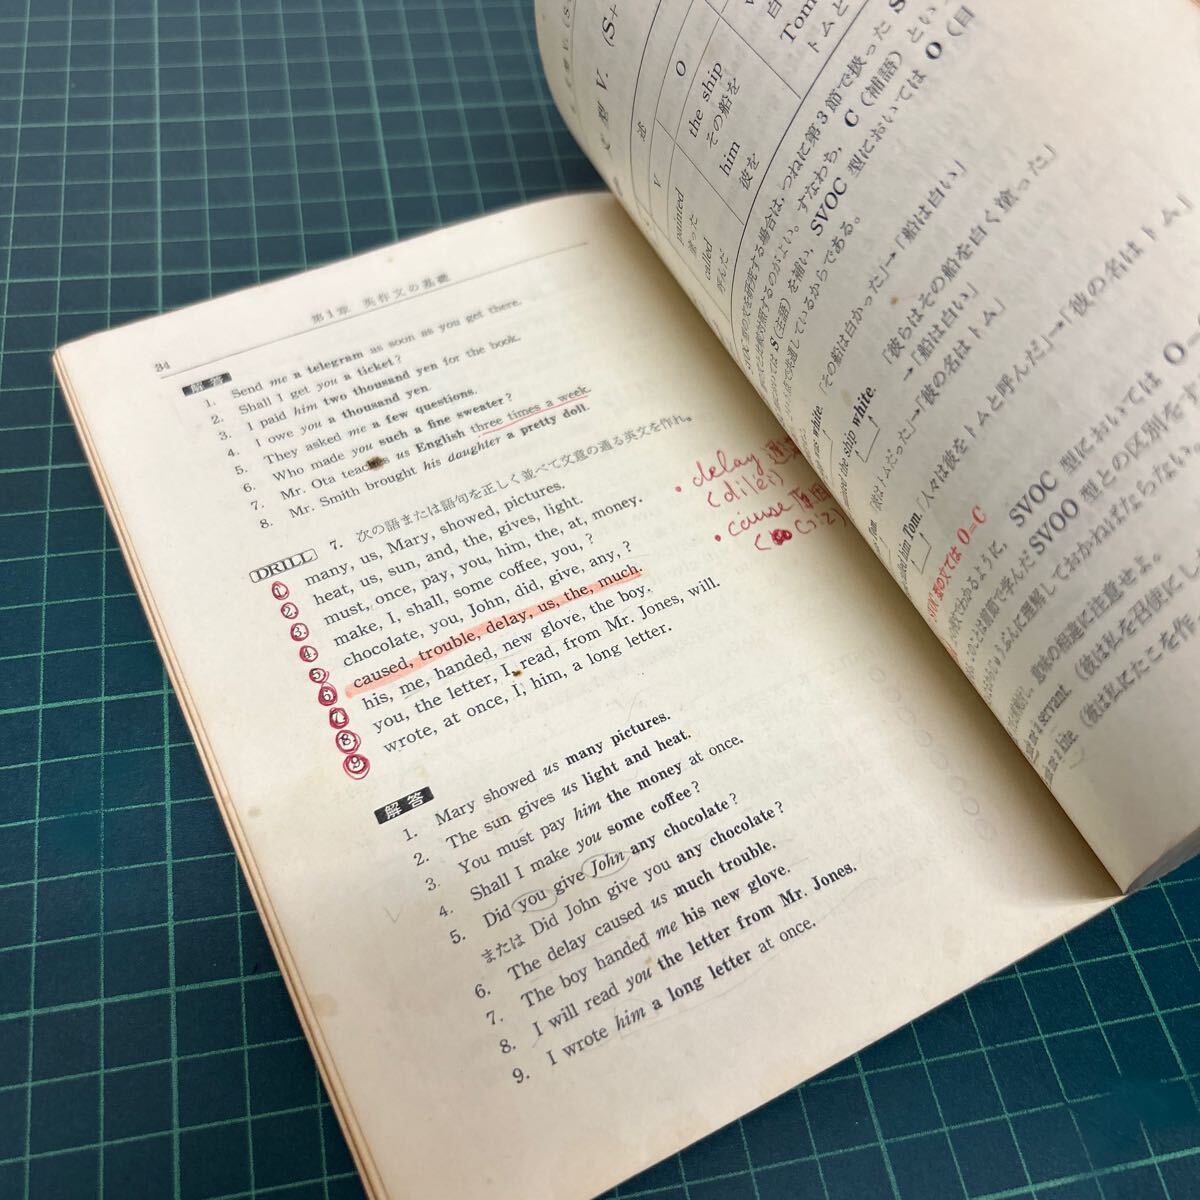 34
第1章 英作文の基礎
解答
1. Send me a telegram as soon as you get there.
2. Shall I get you a ticket?
3. I paid him two thousand yen for the book.
4. I owe you a thousand yen.
5. They asked me a few questions.
6. Who made you such a fine sweater?
7. Mr. Ota teaches us English three times a week.
8. Mr. Smith brought his daughter a pretty doll.
DRILL 7. 次の語または語句を正しく並べて文意の通る英文を作れ。
1. many, us, Mary, showed, pictures.
2. heat, us, sun, and, the, gives, light.
3. must, once, pay, you, him, the, at, money.
4. make, I, shall, some coffee, you, ?
5. chocolate, you, John, did, give, any, ?
6. caused, trouble, delay, us, the, much.
7. his, me, handed, new glove, the boy.
8. you, the letter, I, read, from Mr. Jones, will.
9. wrote, at once, I, him, a long letter.
• delay
(dilei)
• cause
解答
1. Mary showed us many pictures.
2. The sun gives us light and heat.
3. You must pay him the money at once.
4. Shall I make you some coffee?
5. Did you give John any chocolate?
または Did John give you any chocolate?
6. The delay caused us much trouble.
7. The boy handed me his new glove.
8. I will read you the letter from Mr. Jones.
9. I wrote him a long letter at once.
V. (S+
述
V
O
painted
塗った
the ship
その船を
called
呼んだ
him
彼を
Tom
トムと
つねに第3節で扱った
すなわち, C (補語) とい
S (主語) を補い, SVOC 型においては O (目
いるからである。
was white. 「その船は白かった」→「船は白い」
the ship white. 「彼らはその船を白く塗った」
→「船は白い」
「彼はトムだった」→「彼の名はトム」
him Tom. 「人々は彼をトムと呼んだ」→「彼の名はトム」
型の文では O=C
SVOC 型においては O=
SVOO 型との区別をす
理解しておかねばならない。
意味の相違に注意せよ。
me a servant. (彼は私を召使にし
me a kite. (彼は私にたこを作